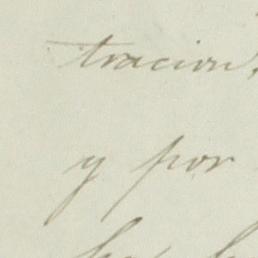 tracion,
y por